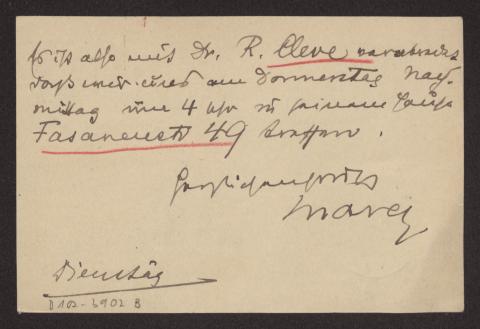 Es ist also mit Dr. R. Cleve verabredet
daß wir uns am Donnerstag Nach-
mittag um 4 Uhr in seinem Hause
Fasanenstr 49 treffen.
Herzlichen Gruß
Dienstag
D 102-6902 B